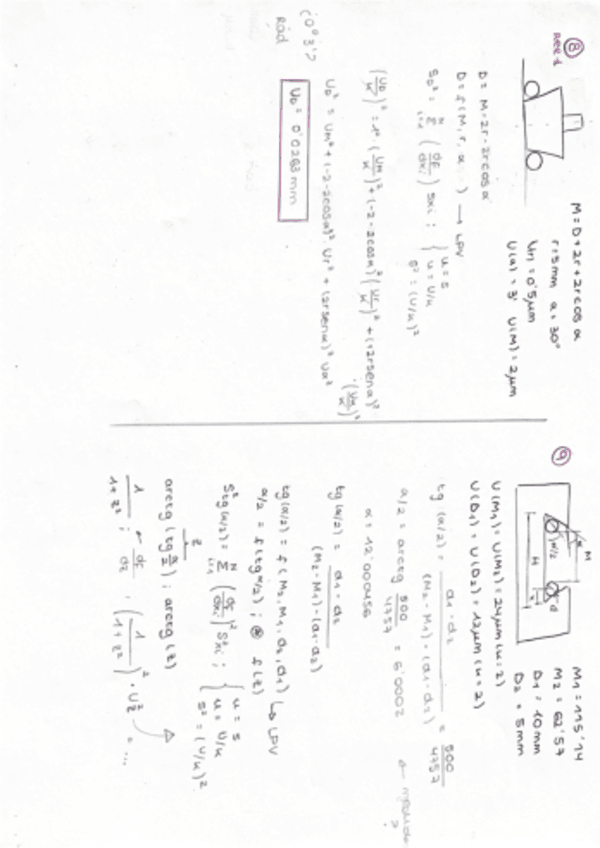 8
REC 1
M = D + 2r + 2r cos α
r = 5mm α = 30°
U(r) = 0'5 μm
U(α) = 3' U(M) = 2 μm
D = M - 2r - 2r cos α
D = f(M, r, α ...) → LPV
S_D² = Σ_{i=1}^{N} (dF/dxi)² Sxi ; { u = s
u = U/k
s² = (U/k)²
(U_D/k)² = 1² · (U_M/k)² + (-2 - 2cosα)² (Ur/k)² + (+2rsenα)² · (Uα/k)²
U_D² = U_M² + (-2 - 2cosα)² Ur² + (2rsenα)² Uα²
(0° 3')
Rad
U_D = 0'0263 mm
9
M
α/2
H
d
M1 = 115'14
M2 = 62'57
D1 = 10mm
D2 = 5mm
U(M1) = U(M2) = 24μm (k = 2)
U(D1) = U(D2) = 12μm (k = 2)
tg (α/2) = d1 - d2 / (M2 - M1) - (d1 - d2) = 500 / 4757
α/2 = arctg 500/4757 = 6'0002
α = 12'000456
tg (α/2) = d1 - d2 / (M2 - M1) - (d1 - d2)
tg (α/2) = f(M2, M1, d2, d1) ↳ LPV
α/2 = f(tg α/2) ; f(z)
S²tg(α/2) = Σ_{i=1}^{N} (dF/dxi)² S²xi ; { u = s
u = U/k
s² = (U/k)²
arctg (tg α/2) ; arctg (z)
z
1 / 1+z² ; ← dF/dz ; (1 / 1+z²)² · U²z = ...